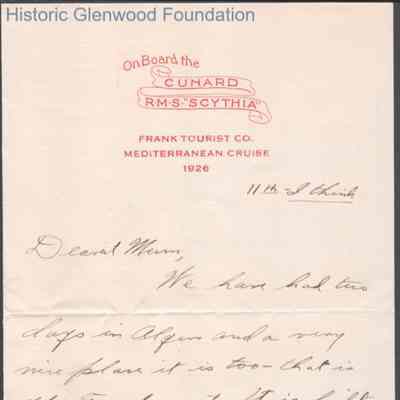 Historic Glenwood Foundation
On Board the
CUNARD
R·M·S·"SCYTHIA"
FRANK TOURIST CO.
MEDITERRANEAN CRUISE
1926
11th I think
Dearest Mum,
We have had two
days in Algiers and a very
nice place it is too - that is
it is